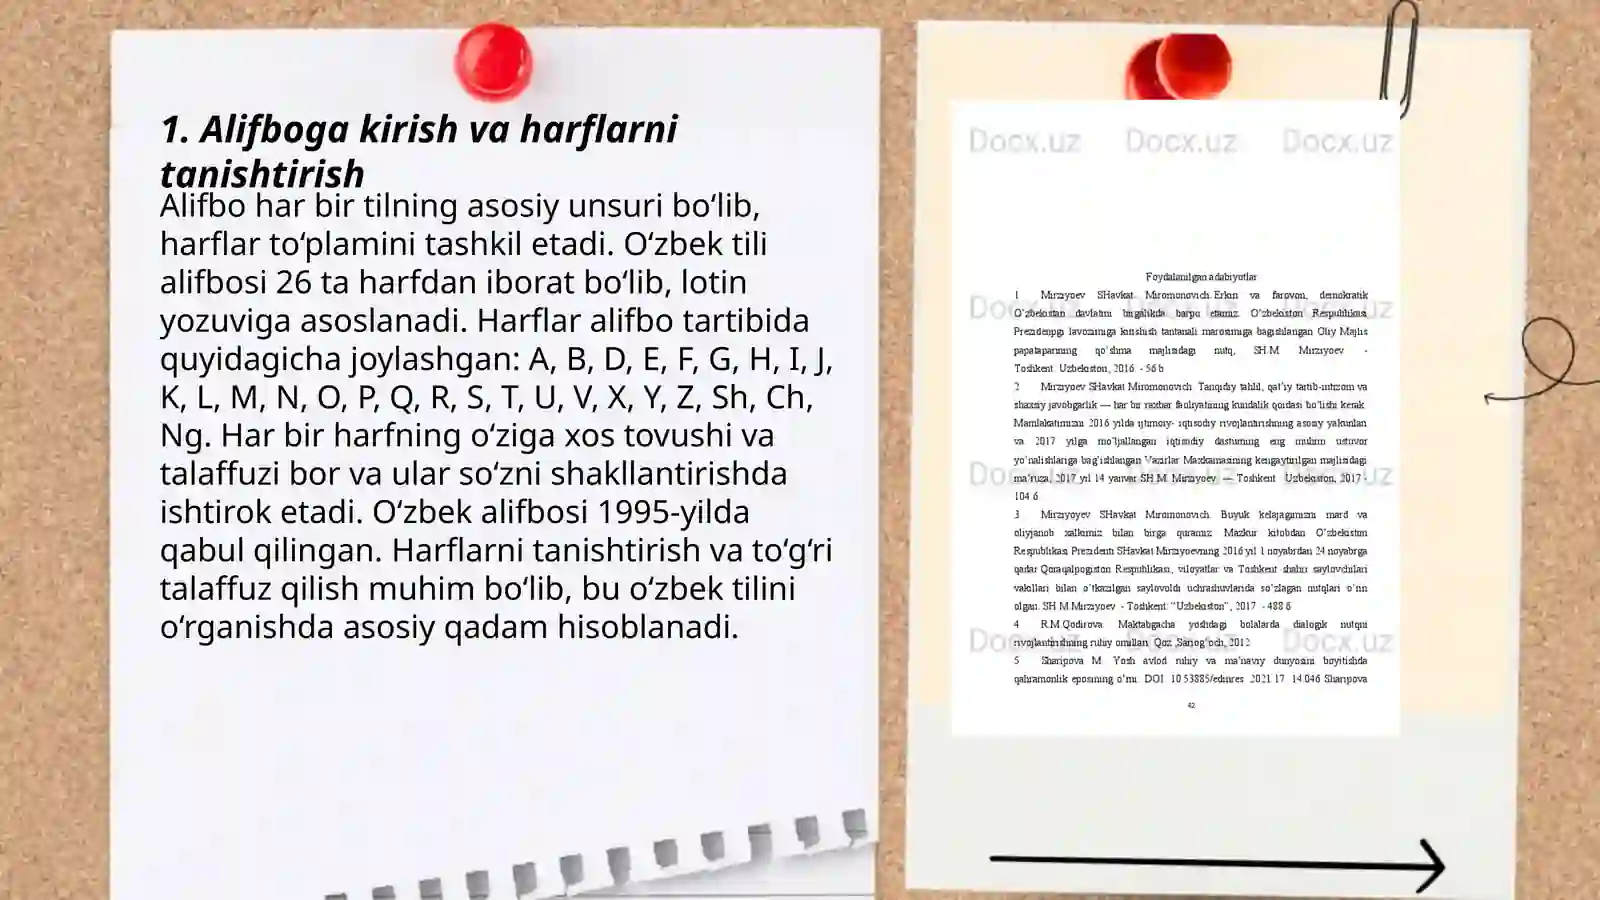 1. Alifboga kirish va harflarni
tanishtirish
Alifbo har bir tilning asosiy unsuri bo‘lib,
harflar to‘plamini tashkil etadi. O‘zbek tili
alifbosi 26 ta harfdan iborat bo‘lib, lotin
yozuviga asoslanadi. Harflar alifbo tartibida
quyidagicha joylashgan: A, B, D, E, F, G, H, I, J,
K, L, M, N, O, P, Q, R, S, T, U, V, X, Y, Z, Sh, Ch,
Ng. Har bir harfning o‘ziga xos tovushi va
talaffuzi bor va ular so‘zni shakllantirishda
ishtirok etadi. O‘zbek alifbosi 1995-yilda
qabul qilingan. Harflarni tanishtirish va to‘g‘ri
talaffuz qilish muhim bo‘lib, bu o‘zbek tilini
o‘rganishda asosiy qadam hisoblanadi.
Docx.uz Docx.uz Docx.uz
Foydalanilgan adabiyotlar
1 Mirziyoev SHavkat Miromonovich. Erkin va farovon, demokratik
O‘zbekistan davlatini birgalikda barpo etamiz. O‘zbekiston Respublikasi
lavozimiga kirishish tantanali marosimiga bagishlangan Oliy Majlis
qo‘shma majlisidagi nutq, SH.M. Mirziyoev -
Toshkent. Uzbekiston, 2016. - 56 b
2 Mirziyoev SHavkat Miromonovich. Tanqidiy tahlil, qat’iy tartib-intizom va
shaxsiy javobgarlik — har bir raxbar faoliyatining kundalik qoidasi bo‘lishi kerak.
Mamlakatimizni 2016 yilda ijtimoiy- iqtisodiy rivojlantirishning asosiy yakunlari
va 2017 yilga mo‘ljallangan iqtisodiy dasturning eng muhim ustuvor
yo‘nalishlariga bag‘ishlangan Vazirlar Maxkamasining kengaytirilgan majlisidagi
ma’ruza, 2017 yil 14 yanvar SH.M. Mirziyoev. — Toshkent. Uzbekiston, 2017 -
104 6.
3 Mirziyoyev SHavkat Miromonovich. Buyuk kelajagimizni mard va
oliyjanob xalkimiz bilan birga quramiz. Mazkur kitobdan O‘zbekiston
Respublikasi Prezidenti SHavkat Mirziyoevning 2016 yil 1 noyabrdan 24 noyabrga
qadar Qoraqalpogiston Respublikasi, viloyatlar va Toshkent shahri saylovchilari
vakillari bilan o‘tkazilgan saylovoldi uchrashuvlarida so‘zlagan nutqlari o‘rin
olgan. SH.M.Mirziyoev. - Toshkent: “Uzbekiston”, 2017. - 488 6
4 R.M.Qodirova. Maktabgacha yoshdagi bolalarda dialogik nutqni
rivojlantirishning ruhiy omillari. 2012
5 Sharipova M. Yosh avlod ruhiy va ma’naviy dunyosini boyitishda
qahramonlik eposining o‘rni. DOI 10.53885/edinres.2021.17.14.046 Sharipova
42